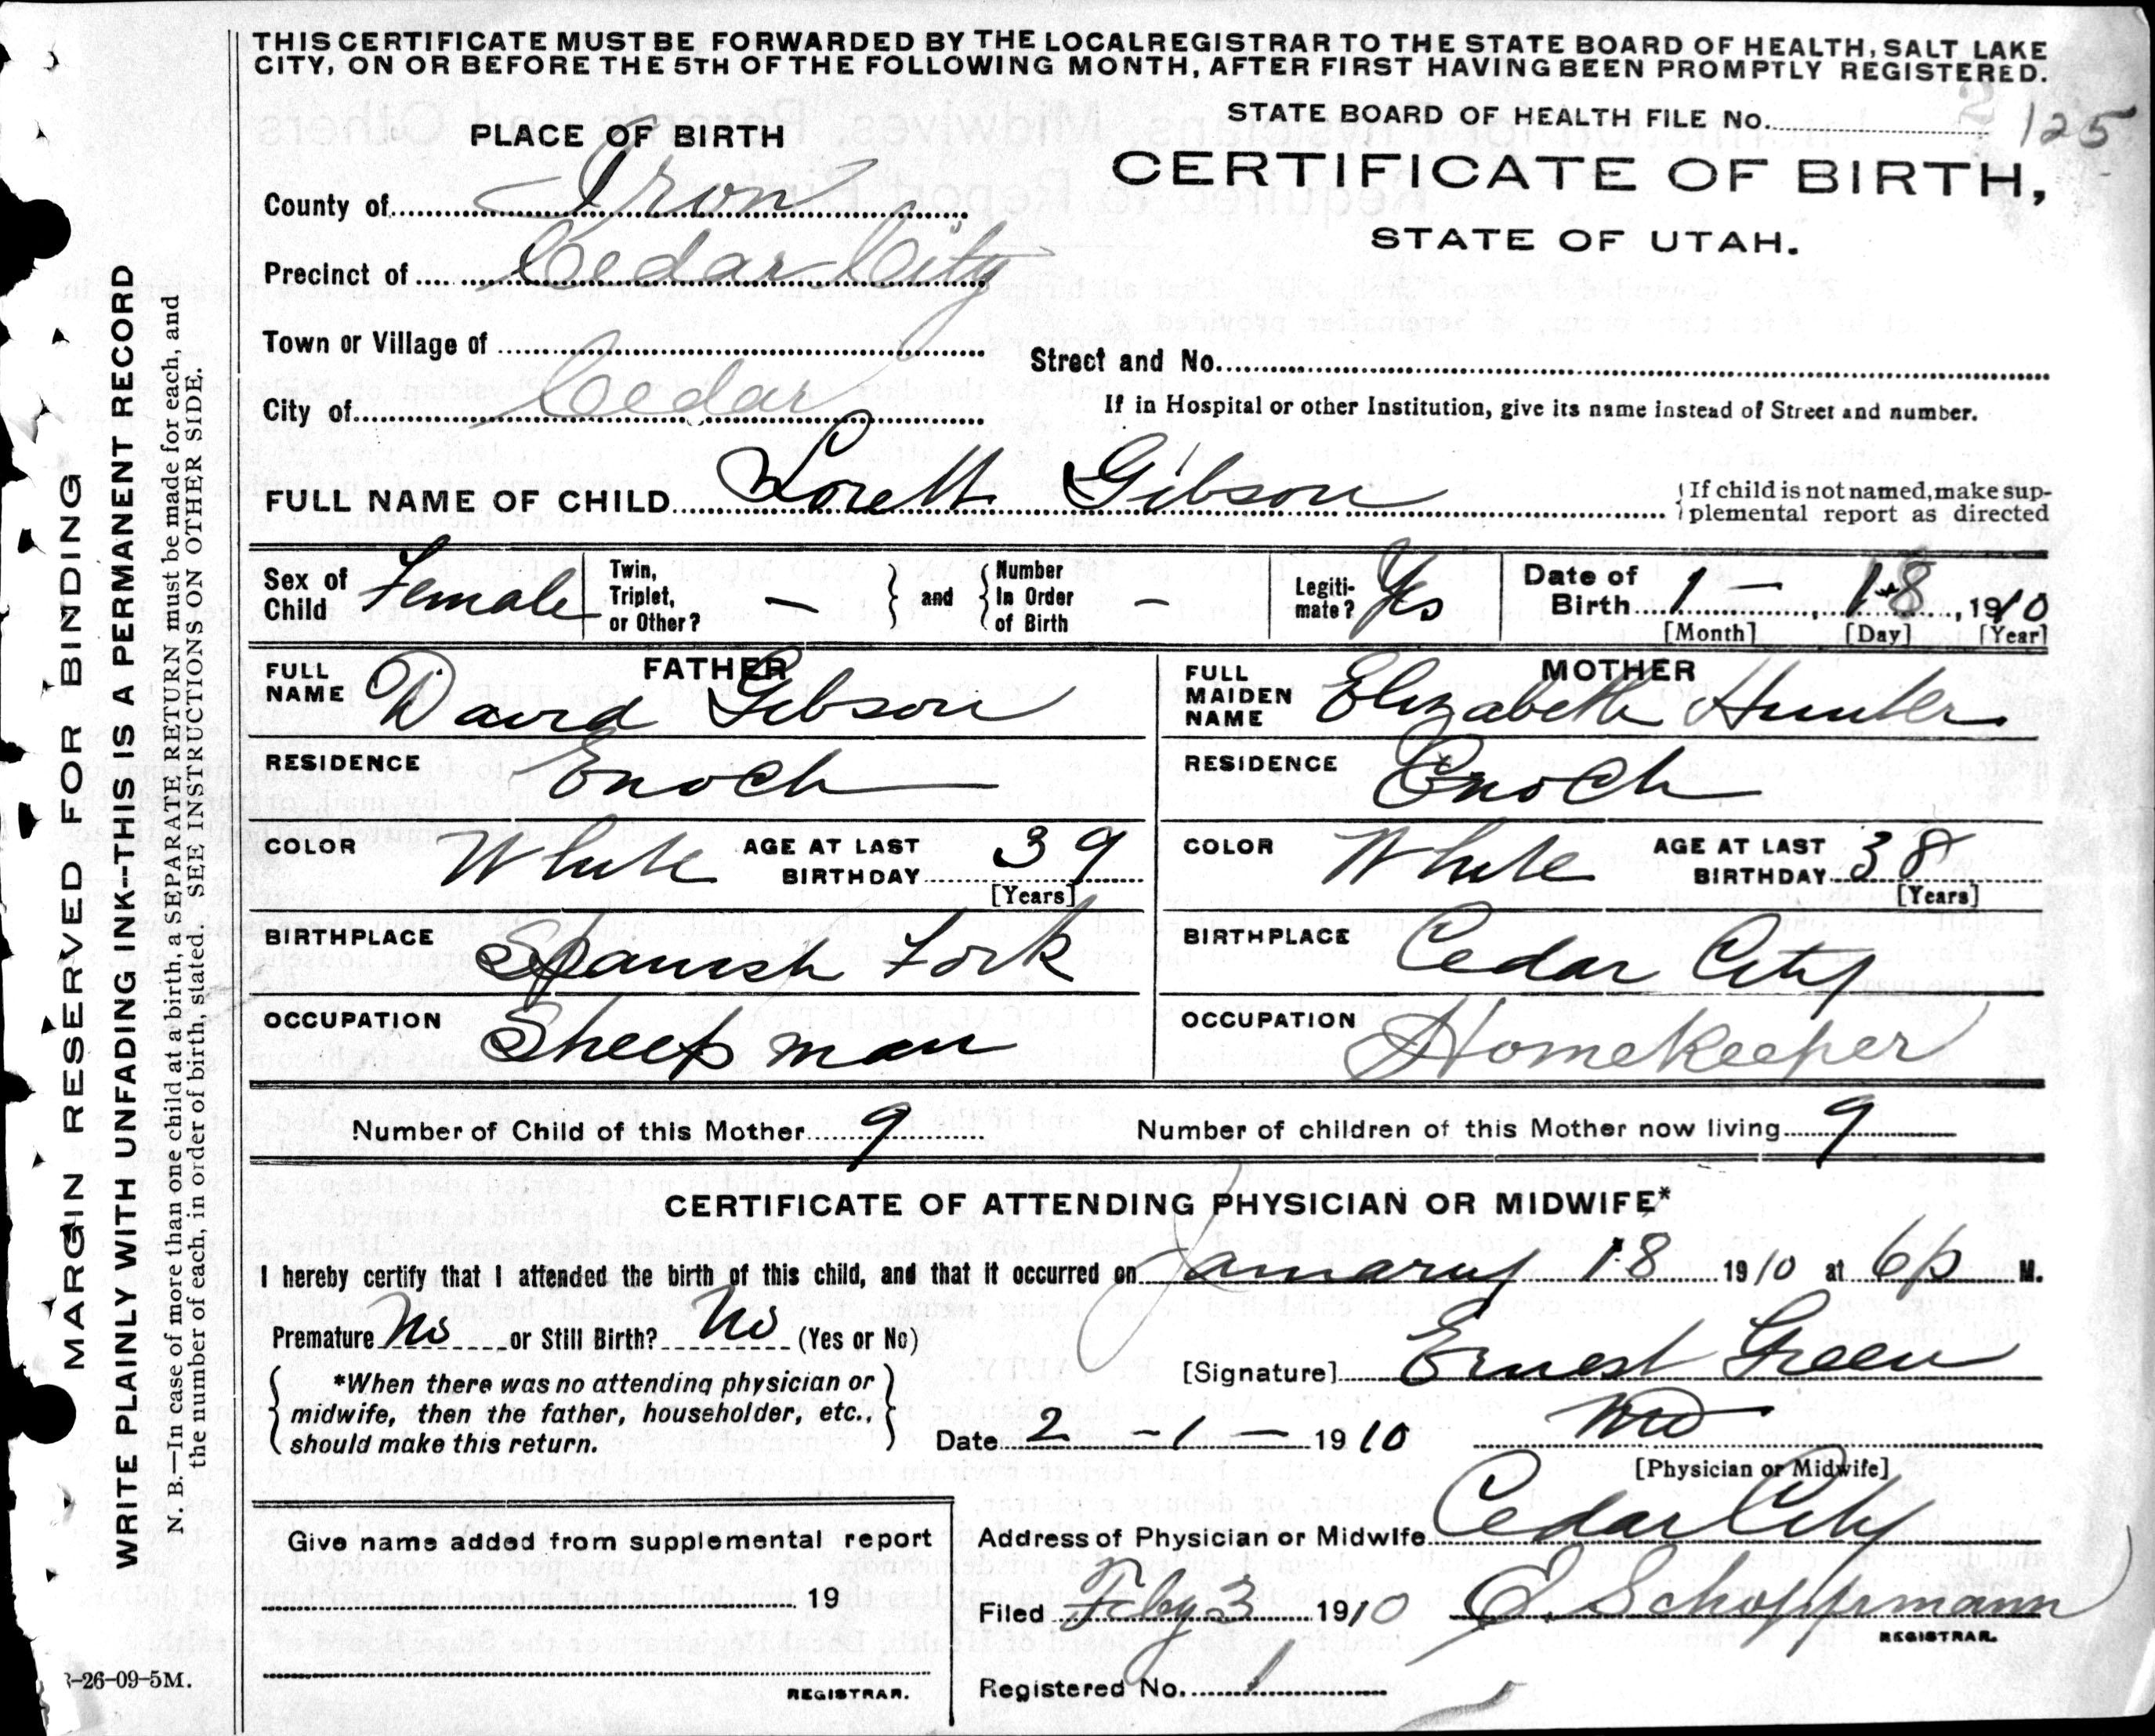 THIS CERTIFICATE MUST BE FORWARDED BY THE LOCAL REGISTRAR TO THE STATE BOARD OF HEALTH, SALT LAKE
CITY, ON OR BEFORE THE 5TH OF THE FOLLOWING MONTH, AFTER FIRST HAVING BEEN PROMPTLY REGISTERED.
STATE BOARD OF HEALTH FILE No. 125
PLACE OF BIRTH
CERTIFICATE OF BIRTH,
STATE OF UTAH.
County of Iron
Precinct of Cedar City
Town or Village of
Street and No.
City of Cedar
If in Hospital or other Institution, give its name instead of Street and number.
FULL NAME OF CHILD Gibson
If child is not named, make sup-
plemental report as directed
Sex of Child Female
Twin, Triplet, or Other? —
and
Number In Order of Birth —
Legiti-mate? Yes
Date of Birth 1 — , 18 , 1910
[Month] [Day] [Year]
FATHER
FULL NAME David Gibson
MOTHER
FULL MAIDEN NAME Elizabeth Hunter
RESIDENCE Enoch
RESIDENCE Enoch
COLOR White AGE AT LAST BIRTHDAY 39 [Years]
COLOR White AGE AT LAST BIRTHDAY 38 [Years]
BIRTHPLACE Spanish Fork
BIRTHPLACE Cedar City
OCCUPATION Sheep man
OCCUPATION Homekeeper
Number of Child of this Mother 9
Number of children of this Mother now living 9
CERTIFICATE OF ATTENDING PHYSICIAN OR MIDWIFE*
I hereby certify that I attended the birth of this child, and that it occurred on January 18 1910 at 6 p M.
Premature No or Still Birth? No (Yes or No)
[Signature] Ernest Green
*When there was no attending physician or
midwife, then the father, householder, etc.,
should make this return.
Date 2 - 1 - 1910
MD
[Physician or Midwife]
Address of Physician or Midwife Cedar City
Give name added from supplemental report
19
REGISTRAR.
Filed Feby 3 1910 E. Schoppmann
REGISTRAR.
Registered No. 1
MARGIN RESERVED FOR BINDING
WRITE PLAINLY WITH UNFADING INK--THIS IS A PERMANENT RECORD
N. B.—In case of more than one child at a birth, a SEPARATE RETURN must be made for each, and
the number of each, in order of birth, stated. SEE INSTRUCTIONS ON OTHER SIDE.
-26-09-5M.